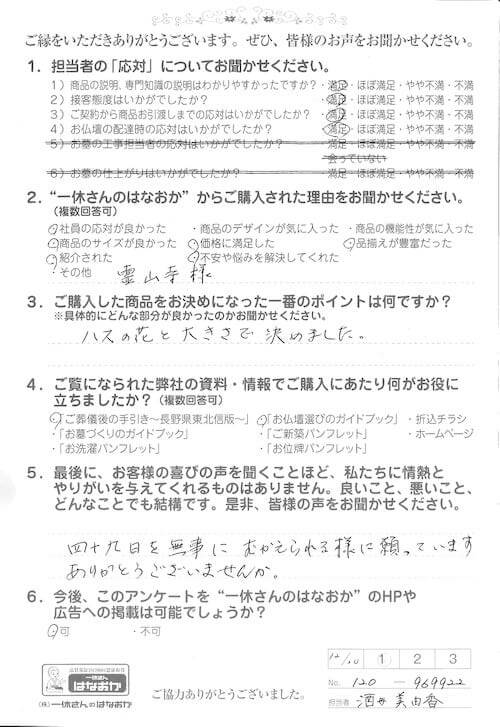 ご縁をいただきありがとうございます。ぜひ、皆様のお声をお聞かせください。
1．担当者の「応対」についてお聞かせください。
1）商品の説明、専門知識の説明はわかりやすかったですか？・満足・ほぼ満足・やや不満・不満
2）接客態度はいかがでしたか？ ・満足・ほぼ満足・やや不満・不満
3）ご契約から商品お引渡しまでの応対はいかがでしたか？・満足・ほぼ満足・やや不満・不満
4）お仏壇の配達時の応対はいかがでしたか？ ・満足・ほぼ満足・やや不満・不満
5）お墓の工事担当者の応対はいかがでしたか？ ・満足・ほぼ満足・やや不満・不満
・会っていない
6）お墓の仕上がりはいかがでしたか？ ・満足・ほぼ満足・やや不満・不満
2．“一休さんのはなおか”からご購入された理由をお聞かせください。
（複数回答可）
・社員の応対が良かった ・商品のデザインが気に入った ・商品の機能性が気に入った
・商品のサイズが良かった ・価格に満足した ・品揃えが豊富だった
・紹介された ・不安や悩みを解決してくれた
・その他 霊山寺様
3．ご購入した商品をお決めになった一番のポイントは何ですか？
※具体的にどんな部分が良かったのかお聞かせください。
ハスの花と大きさで決めました。
4．ご覧になられた弊社の資料・情報でご購入にあたり何がお役に
立ちましたか？（複数回答可）
・「ご葬儀後の手引き～長野県東北信版～」 ・「お仏壇選びのガイドブック」 ・折込チラシ
・「お墓づくりのガイドブック」 ・「ご新築パンフレット」 ・ホームページ
・「お洗濯パンフレット」 ・「お位牌パンフレット」
5．最後に、お客様の喜びの声を聞くことほど、私たちに情熱と
やりがいを与えてくれるものはありません。良いこと、悪いこと、
どんなことでも結構です。是非、皆様の声をお聞かせください。
四十九日を無事にむかえられる様に願っています
ありがとうございませんか。
6．今後、このアンケートを“一休さんのはなおか”のHPや
広告への掲載は可能でしょうか？
・可 ・不可
一休さんの
はなおか
（株）一休さんのはなおか
ご協力ありがとうございました。
12/10 1 2 3
No. 120 — 969922
担当者 酒井 美由香